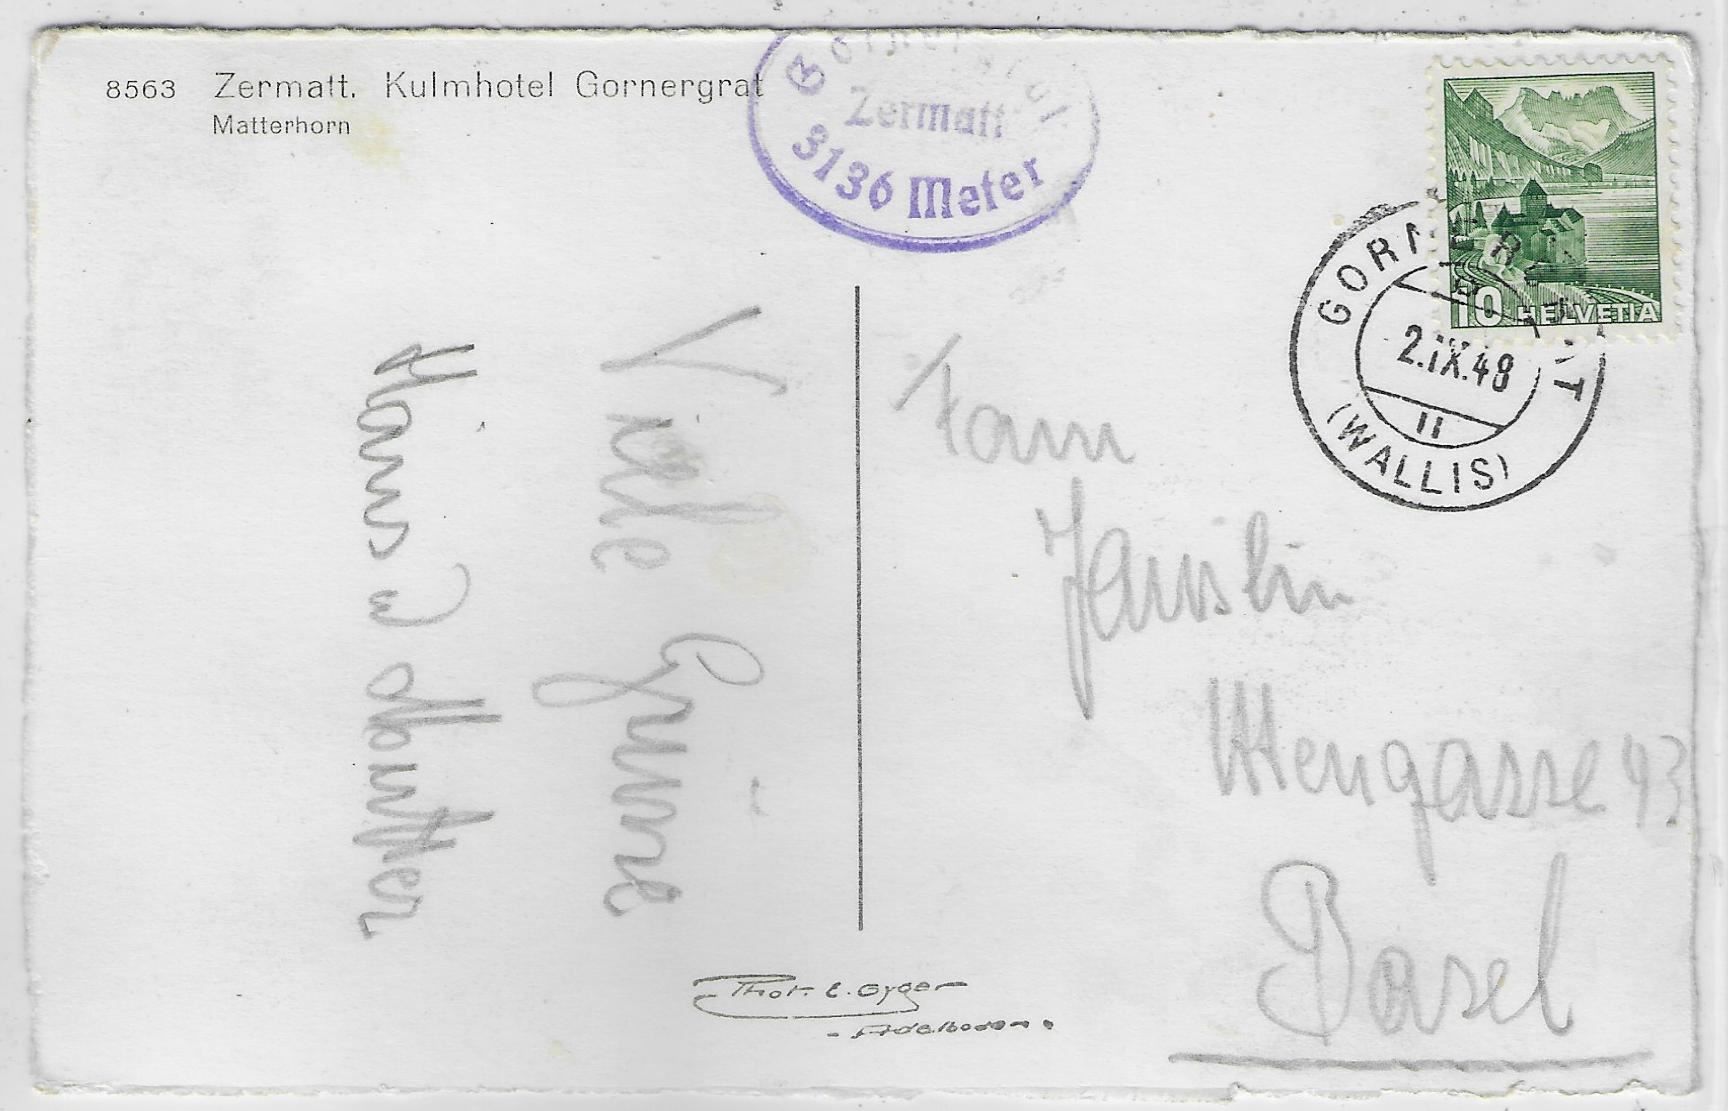 8563 Zermatt. Kulmhotel Gornergrat
Matterhorn
Zermatt
3136 Meter
10 HELVETIA
GORNERGRAT
2.IX.48
(WALLIS)
Viele Grüsse
Hans u
Fam
Jauslin
Utengasse 43
Basel
Phot. E. Gyger
- Adelboden.